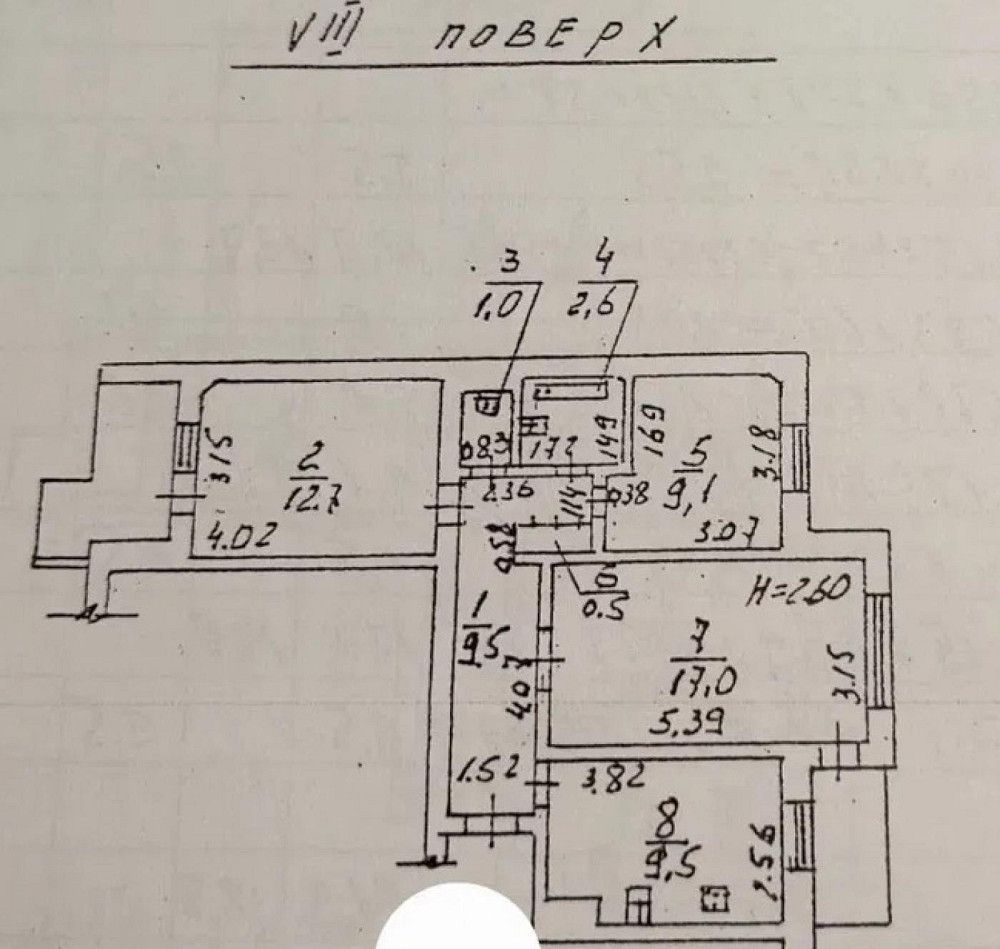 VIII ПОВЕРХ
3
1,0
4
2,6
3.15
2
12.7
4.02
0.83
172
149
169
5
9,1
3.18
3.07
2.36
114
038
0.58
6
0.5
H=2.60
1
9,5
4.07
7
17,0
5,39
3.15
1.52
3.82
8
9,5
2.56